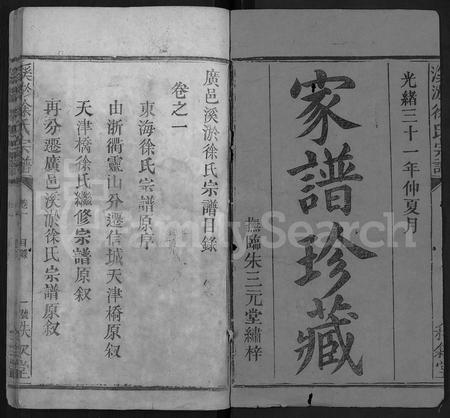 溪淤徐氏宗譜
光緒三十一年仲夏月
家譜珍藏
撫臨朱三元堂繡梓
廣邑溪淤徐氏宗譜目錄
卷之一
東海徐氏宗譜原序
由浙衢靈山分遷信城天津橋原叙
天津橋徐氏繼修宗譜原叙
再分遷廣邑溪淤徐氏宗譜原叙
溪淤徐氏宗譜
卷一
目錄
一號
秩叙堂
FamilySearch